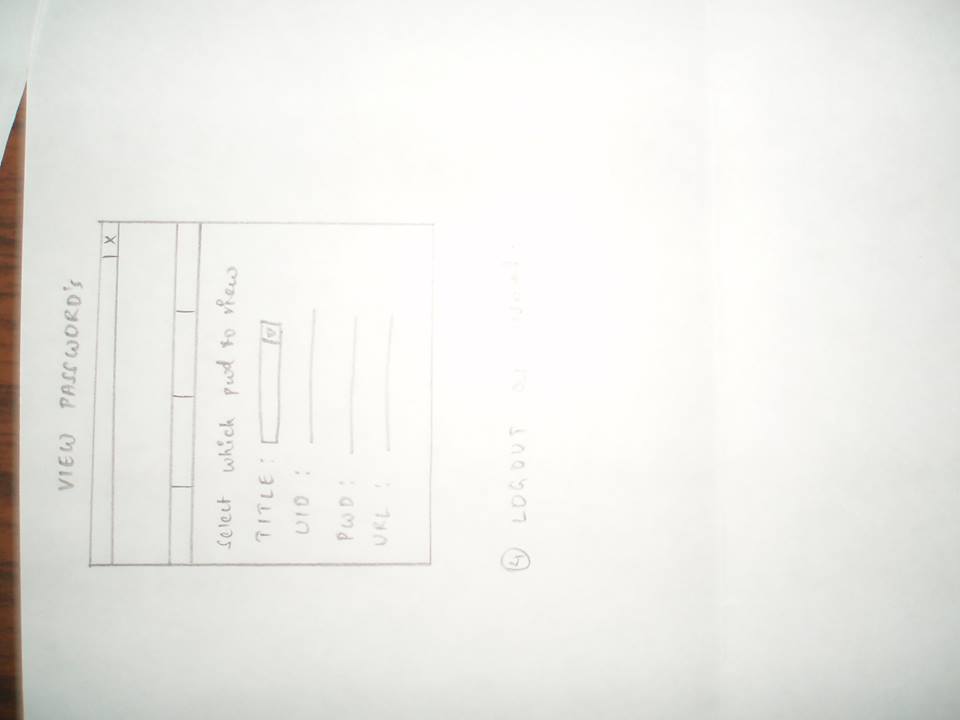 VIEW PASSWORD's
X
Select which pwd to view
TITLE :
UID :
PWD :
URL :
4 LOGOUT as